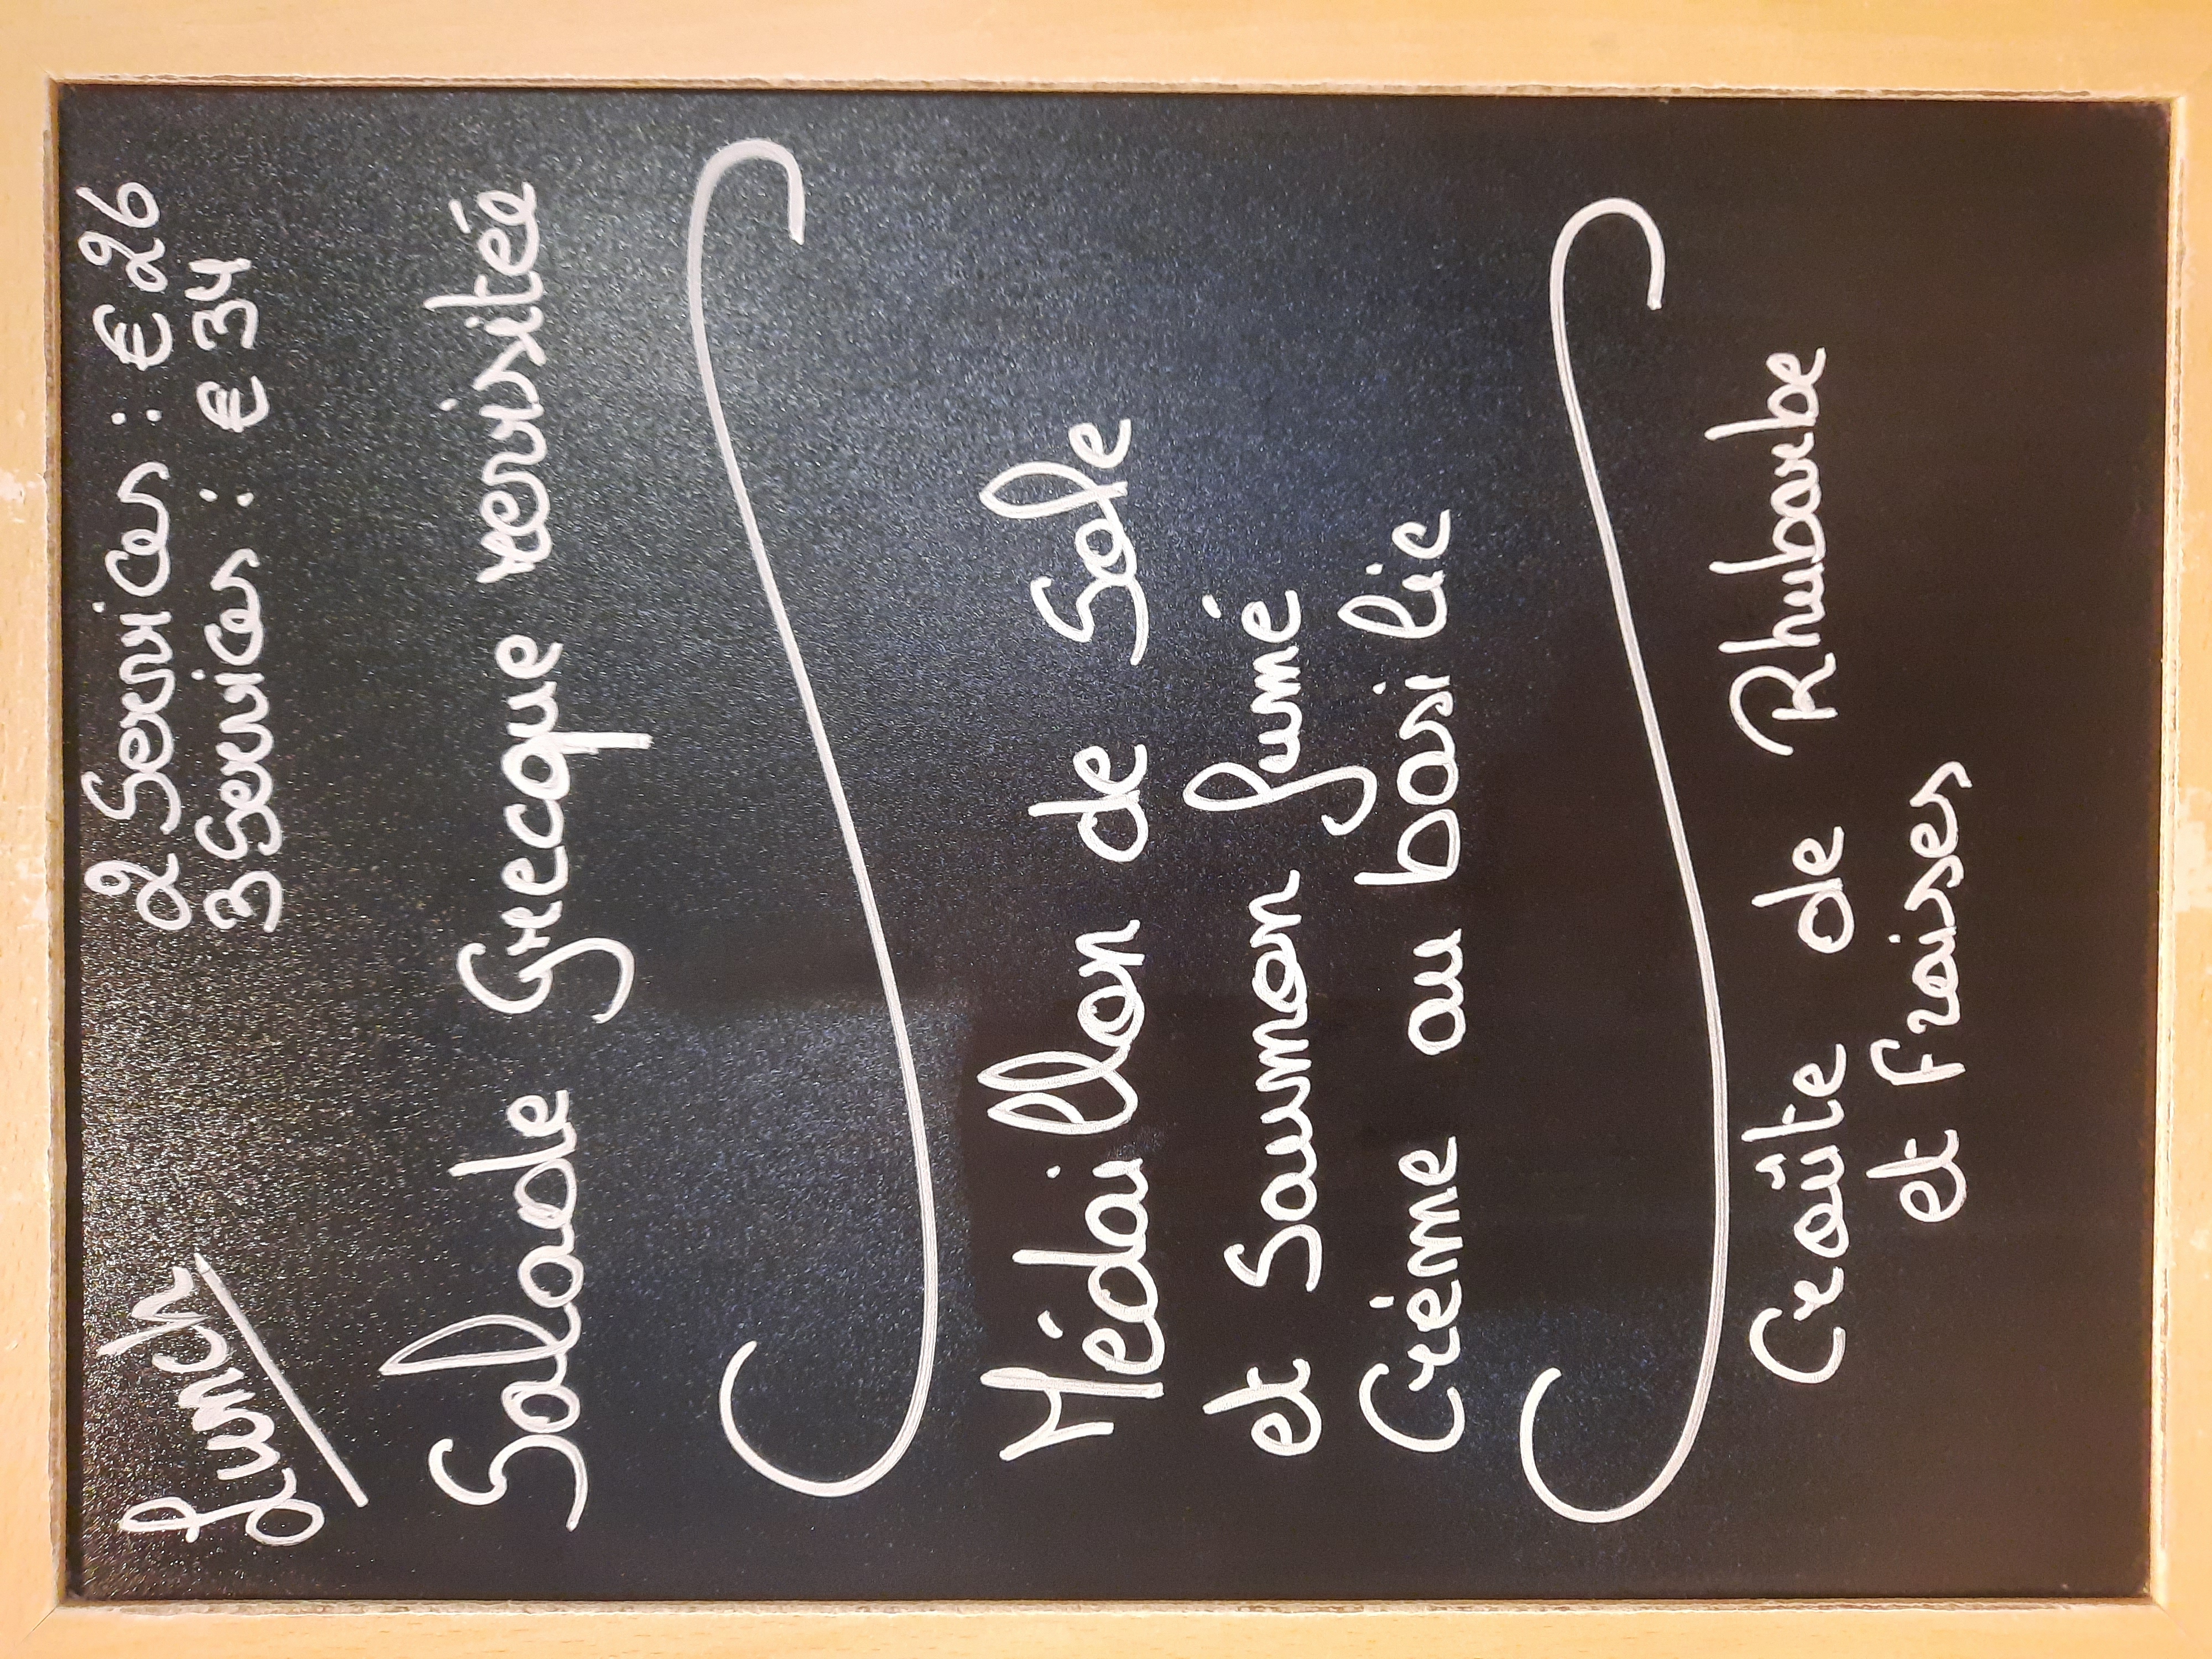 Lunch
2 Services : € 26
3 Services : € 34
Salade Grecque revisitée
Médaillon de Sole
et Saumon fumé
Crème au basilic
Croûte de Rhubarbe
et fraises